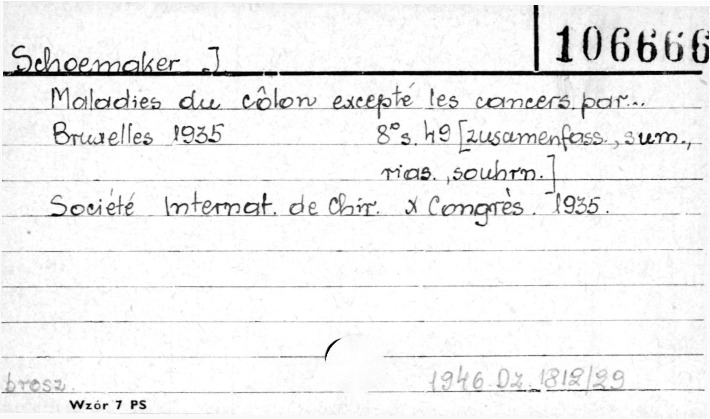 106666
Schoemaker J.
Maladies du côlon excepté les cancers par...
Bruxelles 1935 8° s. 49 [zusamenfass., sum.,
rias., souhrn.]
Société Internat. de Chir. X Congrès. 1935.
brosz. 1946 Dz. 1812/29
Wzór 7 PS